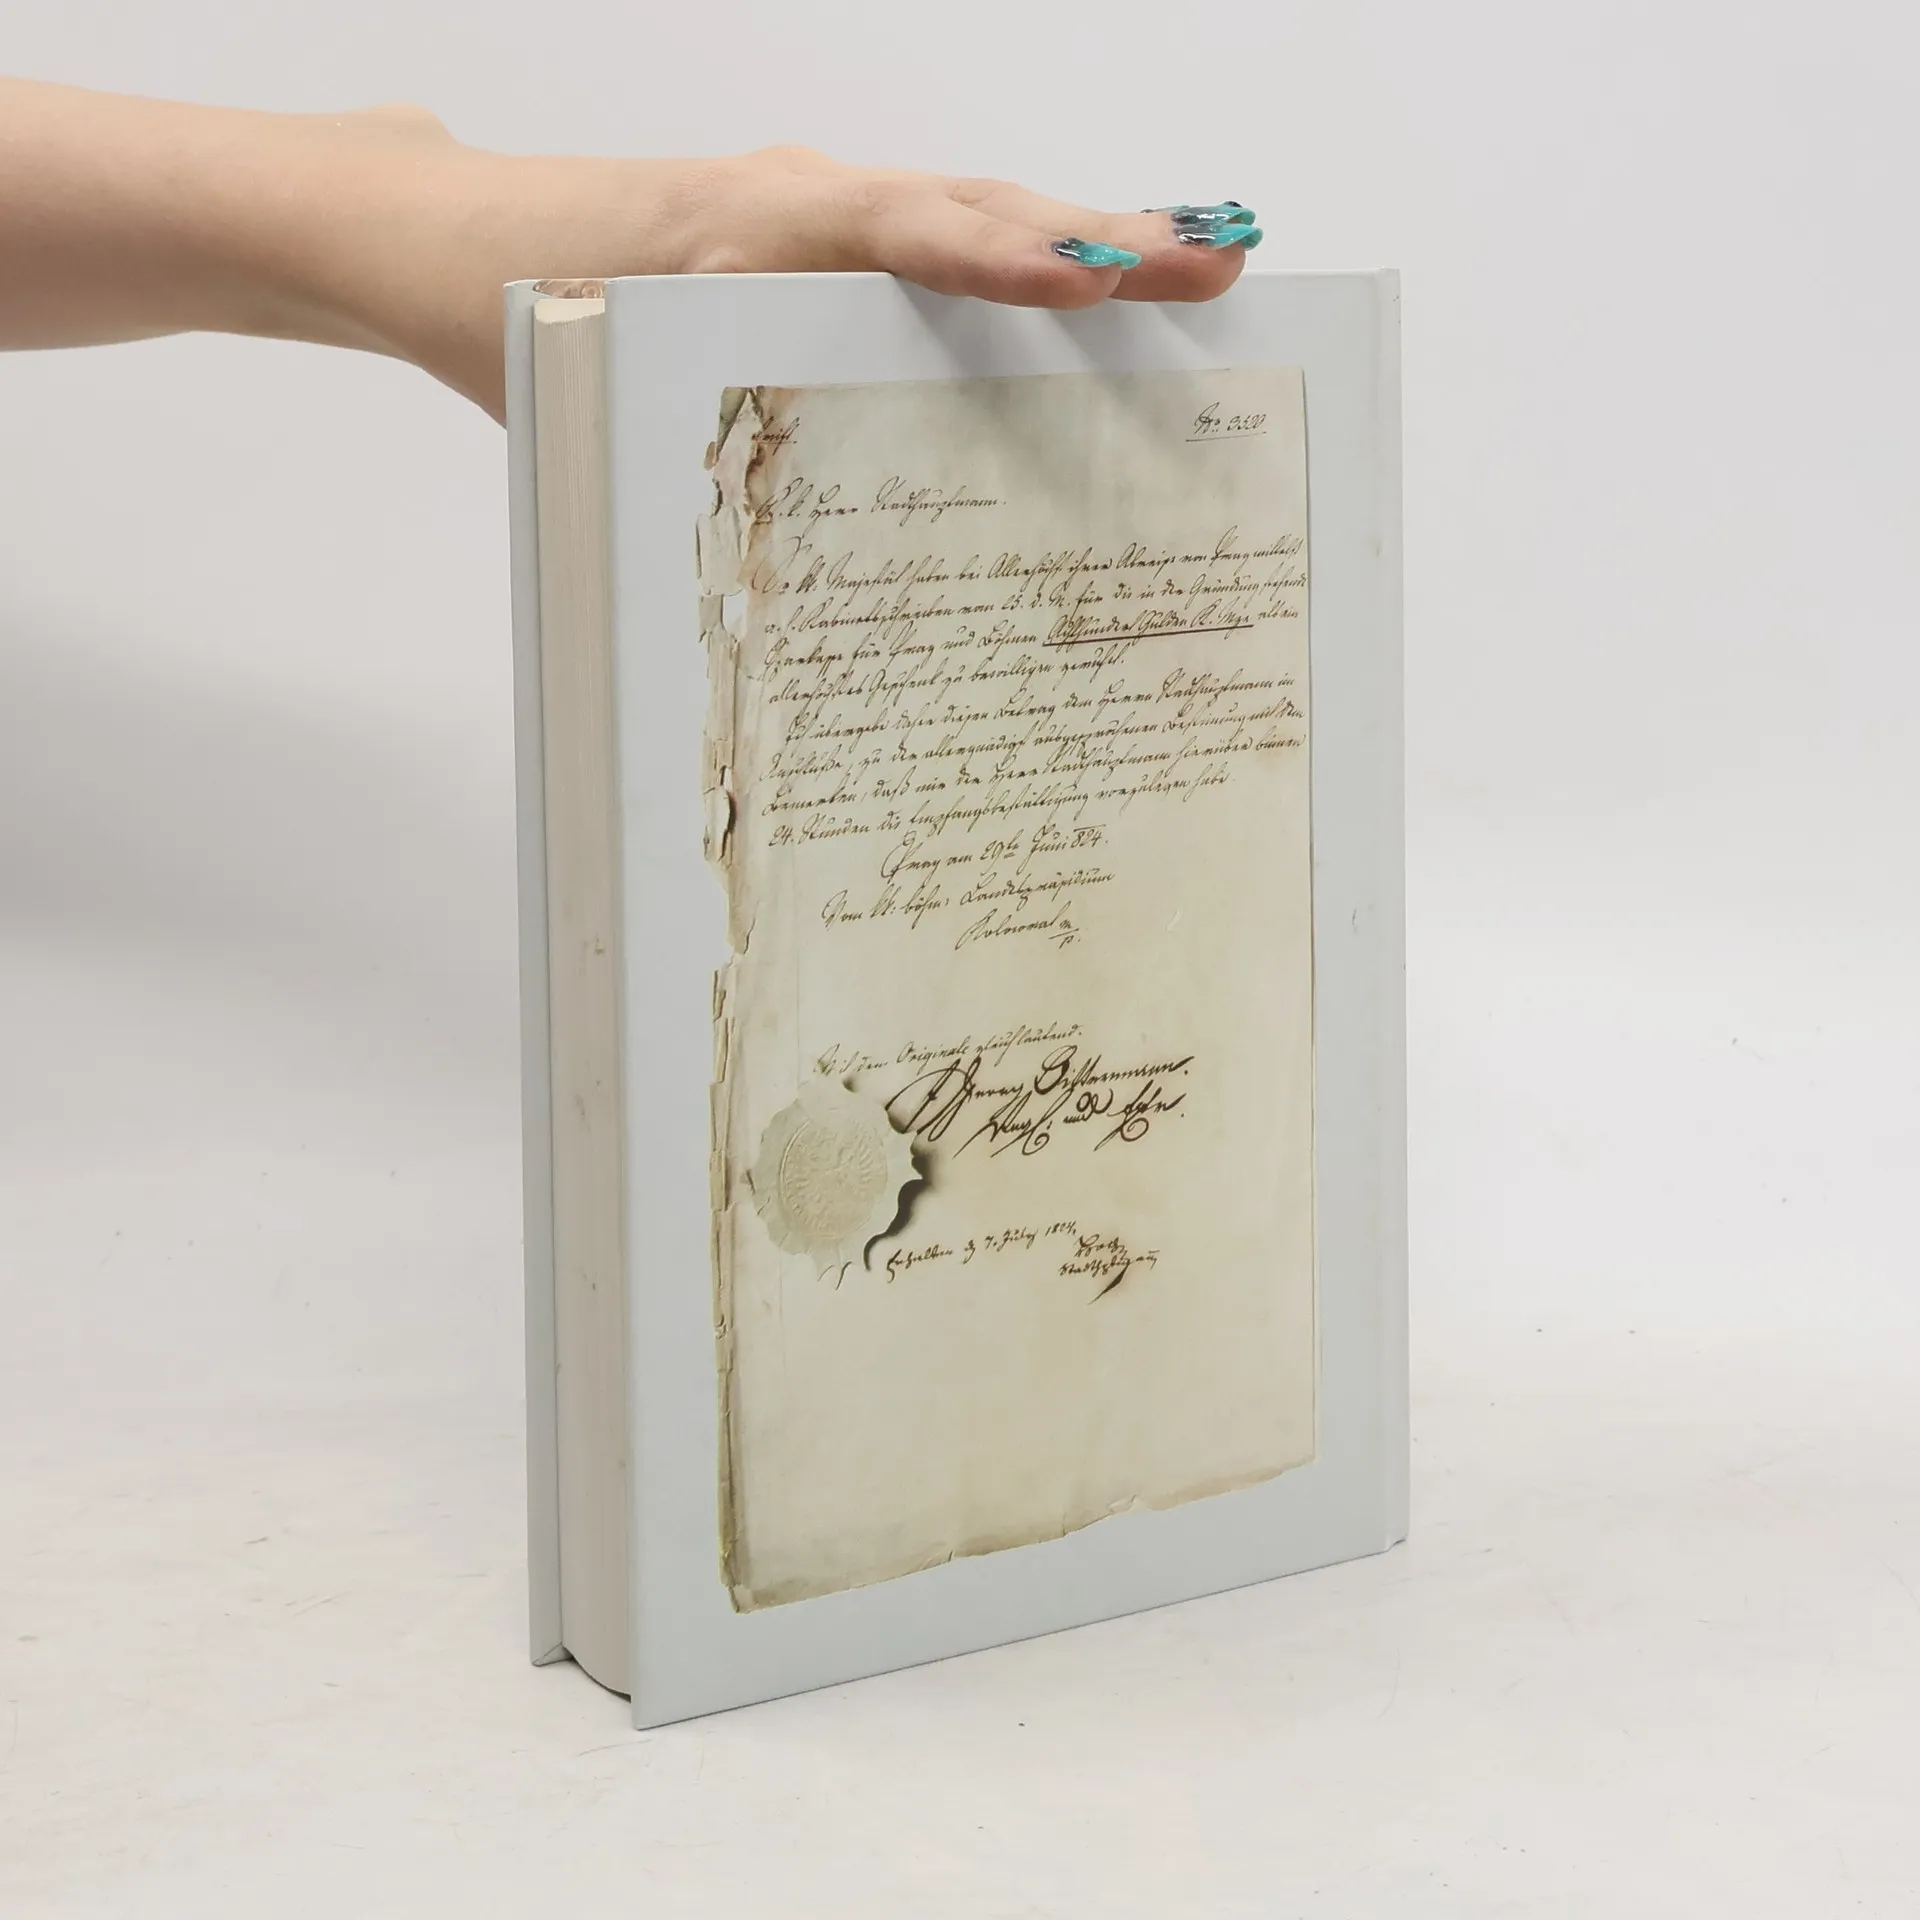 No 3520
K. k. Herr Stadthauptmann.
Se kk: Majestät haben bei Allerhöchst ihrer Abreise von Prag mittelst
a. h. Kabinetsschreiben vom 25. d. M. für die in der Gründung stehende
Sparkasse für Prag und Böhmen Achthundert Gulden K. Mze als ein
allerhöchstes Geschenk zu bewilligen geruhet.
Ich übergebe daher diesen Betrag dem Herrn Stadthauptmann im
Anschluße, zu der allergnädigst ausgesprochenen Bestimmung mit dem
Bemerken, daß mir der Herr Stadthauptmann hierüber binnen
24. Stunden die Empfangsbestättigung vorzulegen habe.
Prag am 29te Juni 824.
Vom kk: böhm: Landespräsidium
Kolowrat m/p.
Mit dem Originale gleichlautend.
und
Erhalten d 7. July 1824.
Stadthptmann